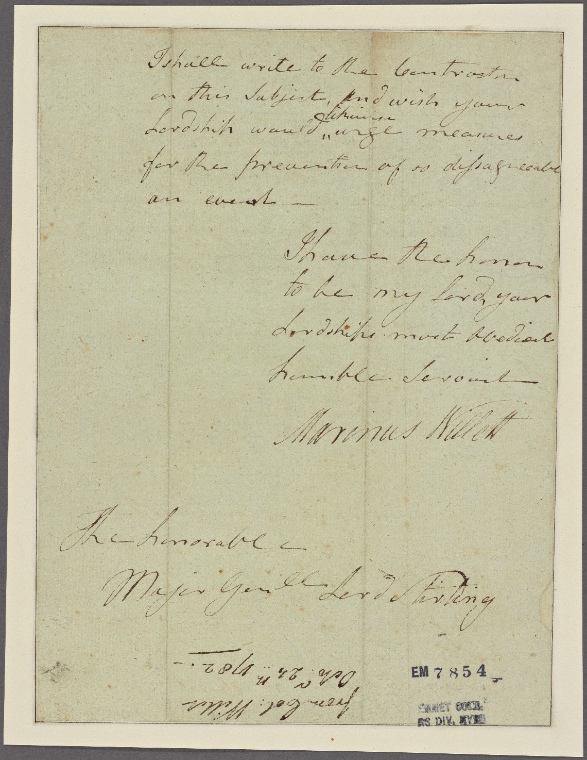 I shall write to the Contractor
on this Subject, and wish your
Lordship would likewise urge measures
for the prevention of so dissagreeable
an event —
I have the honor
to be my Lord, your
Lordships most obedient
humble Servant
Marinus Willett
The honorable
Major Genll Lord Stirling
from Col: Willet
Octr 24th 1782. —
EM 7854
EMMET COLL.
MS DIV. NYPL